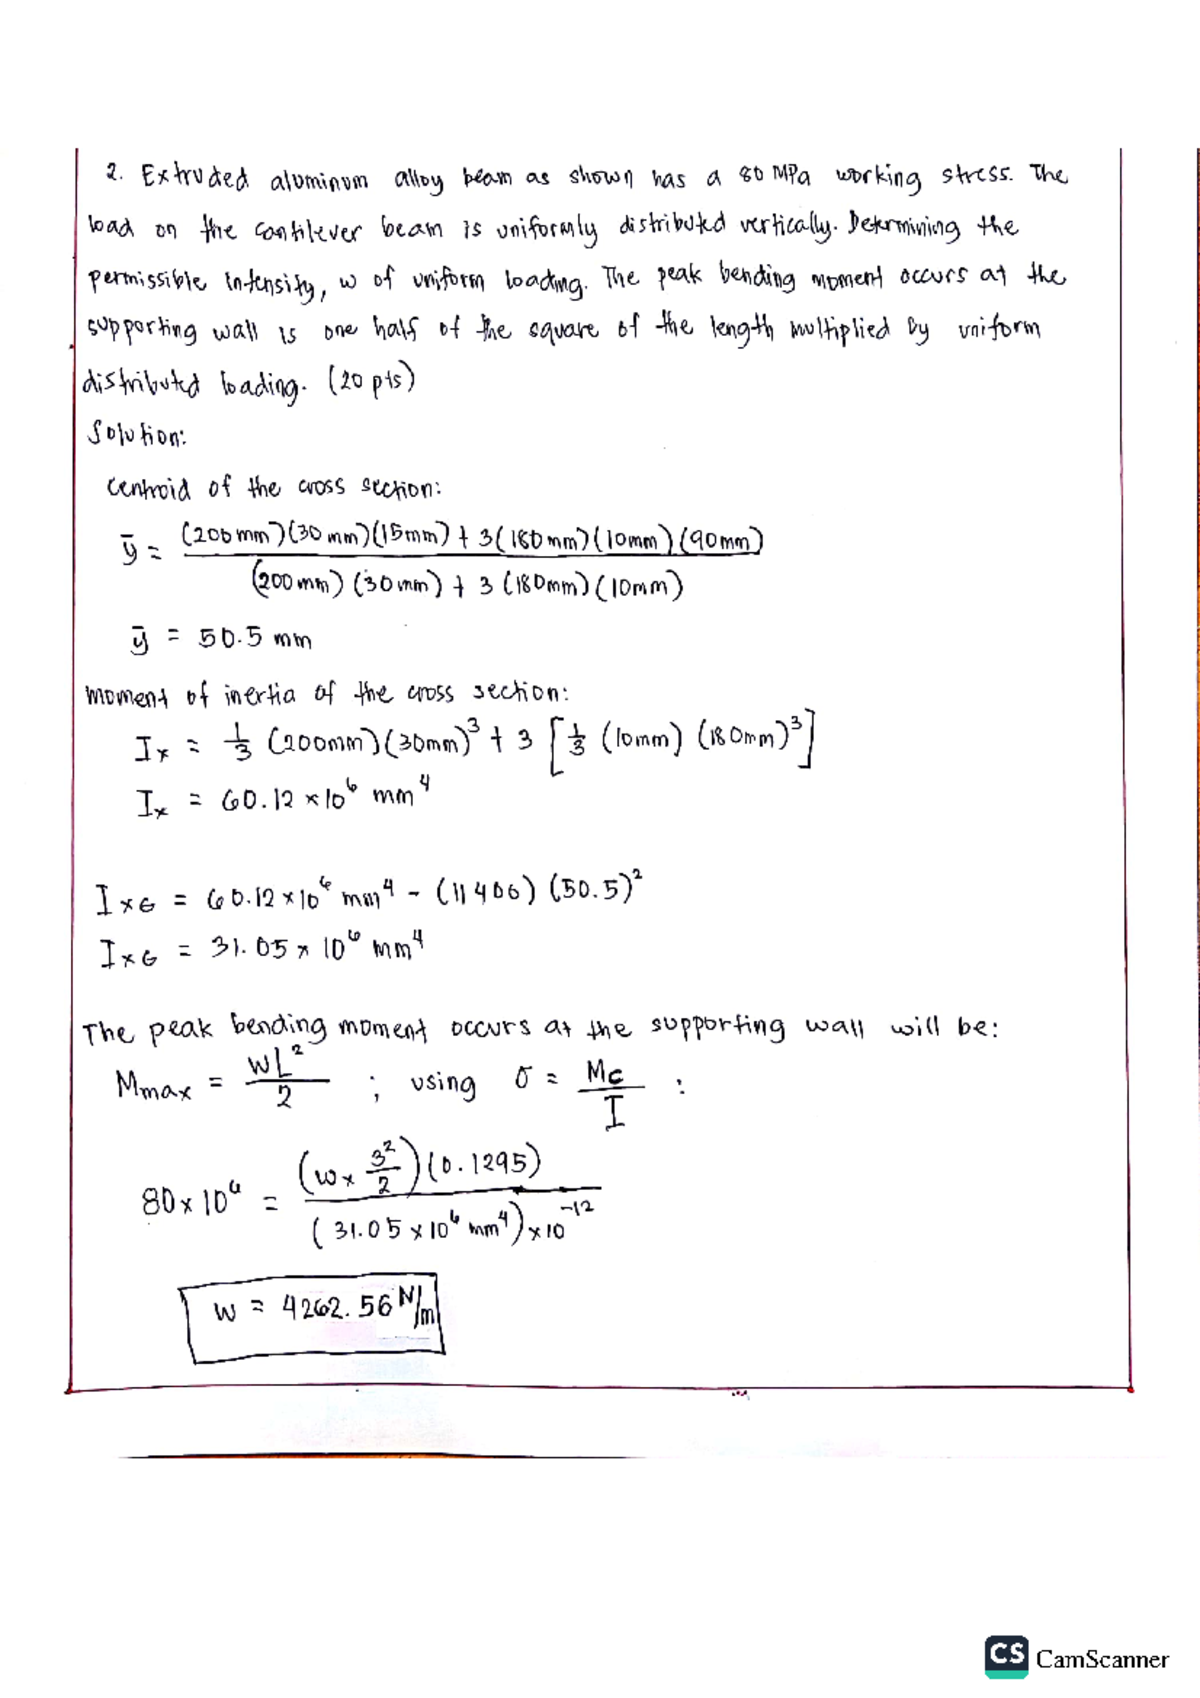 2. Extruded aluminum alloy beam as shown has a 80 MPa working stress. The
load on the cantilever beam is uniformly distributed vertically. Determining the
permissible intensity, w of uniform loading. The peak bending moment occurs at the
supporting wall is one half of the square of the length multiplied by uniform
distributed loading. (20 pts)
Solution:
Centroid of the cross section:
ȳ = (200mm)(30mm)(15mm) + 3(180mm)(10mm)(90mm) / (200mm)(30mm) + 3(180mm)(10mm)
ȳ = 50.5 mm
moment of inertia of the cross section:
Ix = 1/3 (200mm)(30mm)³ + 3 [1/3 (10mm) (180mm)³]
Ix = 60.12 × 10⁶ mm⁴
IxG = 60.12 × 10⁶ mm⁴ - (11400) (50.5)²
IxG = 31.05 × 10⁶ mm⁴
The peak bending moment occurs at the supporting wall will be:
Mmax = WL²/2 ; using σ = Mc/I :
80 × 10⁶ = (w × 3²/2)(0.1295) / (31.05 × 10⁶ mm⁴) × 10⁻¹²
w = 4262.56 N/m
CS CamScanner